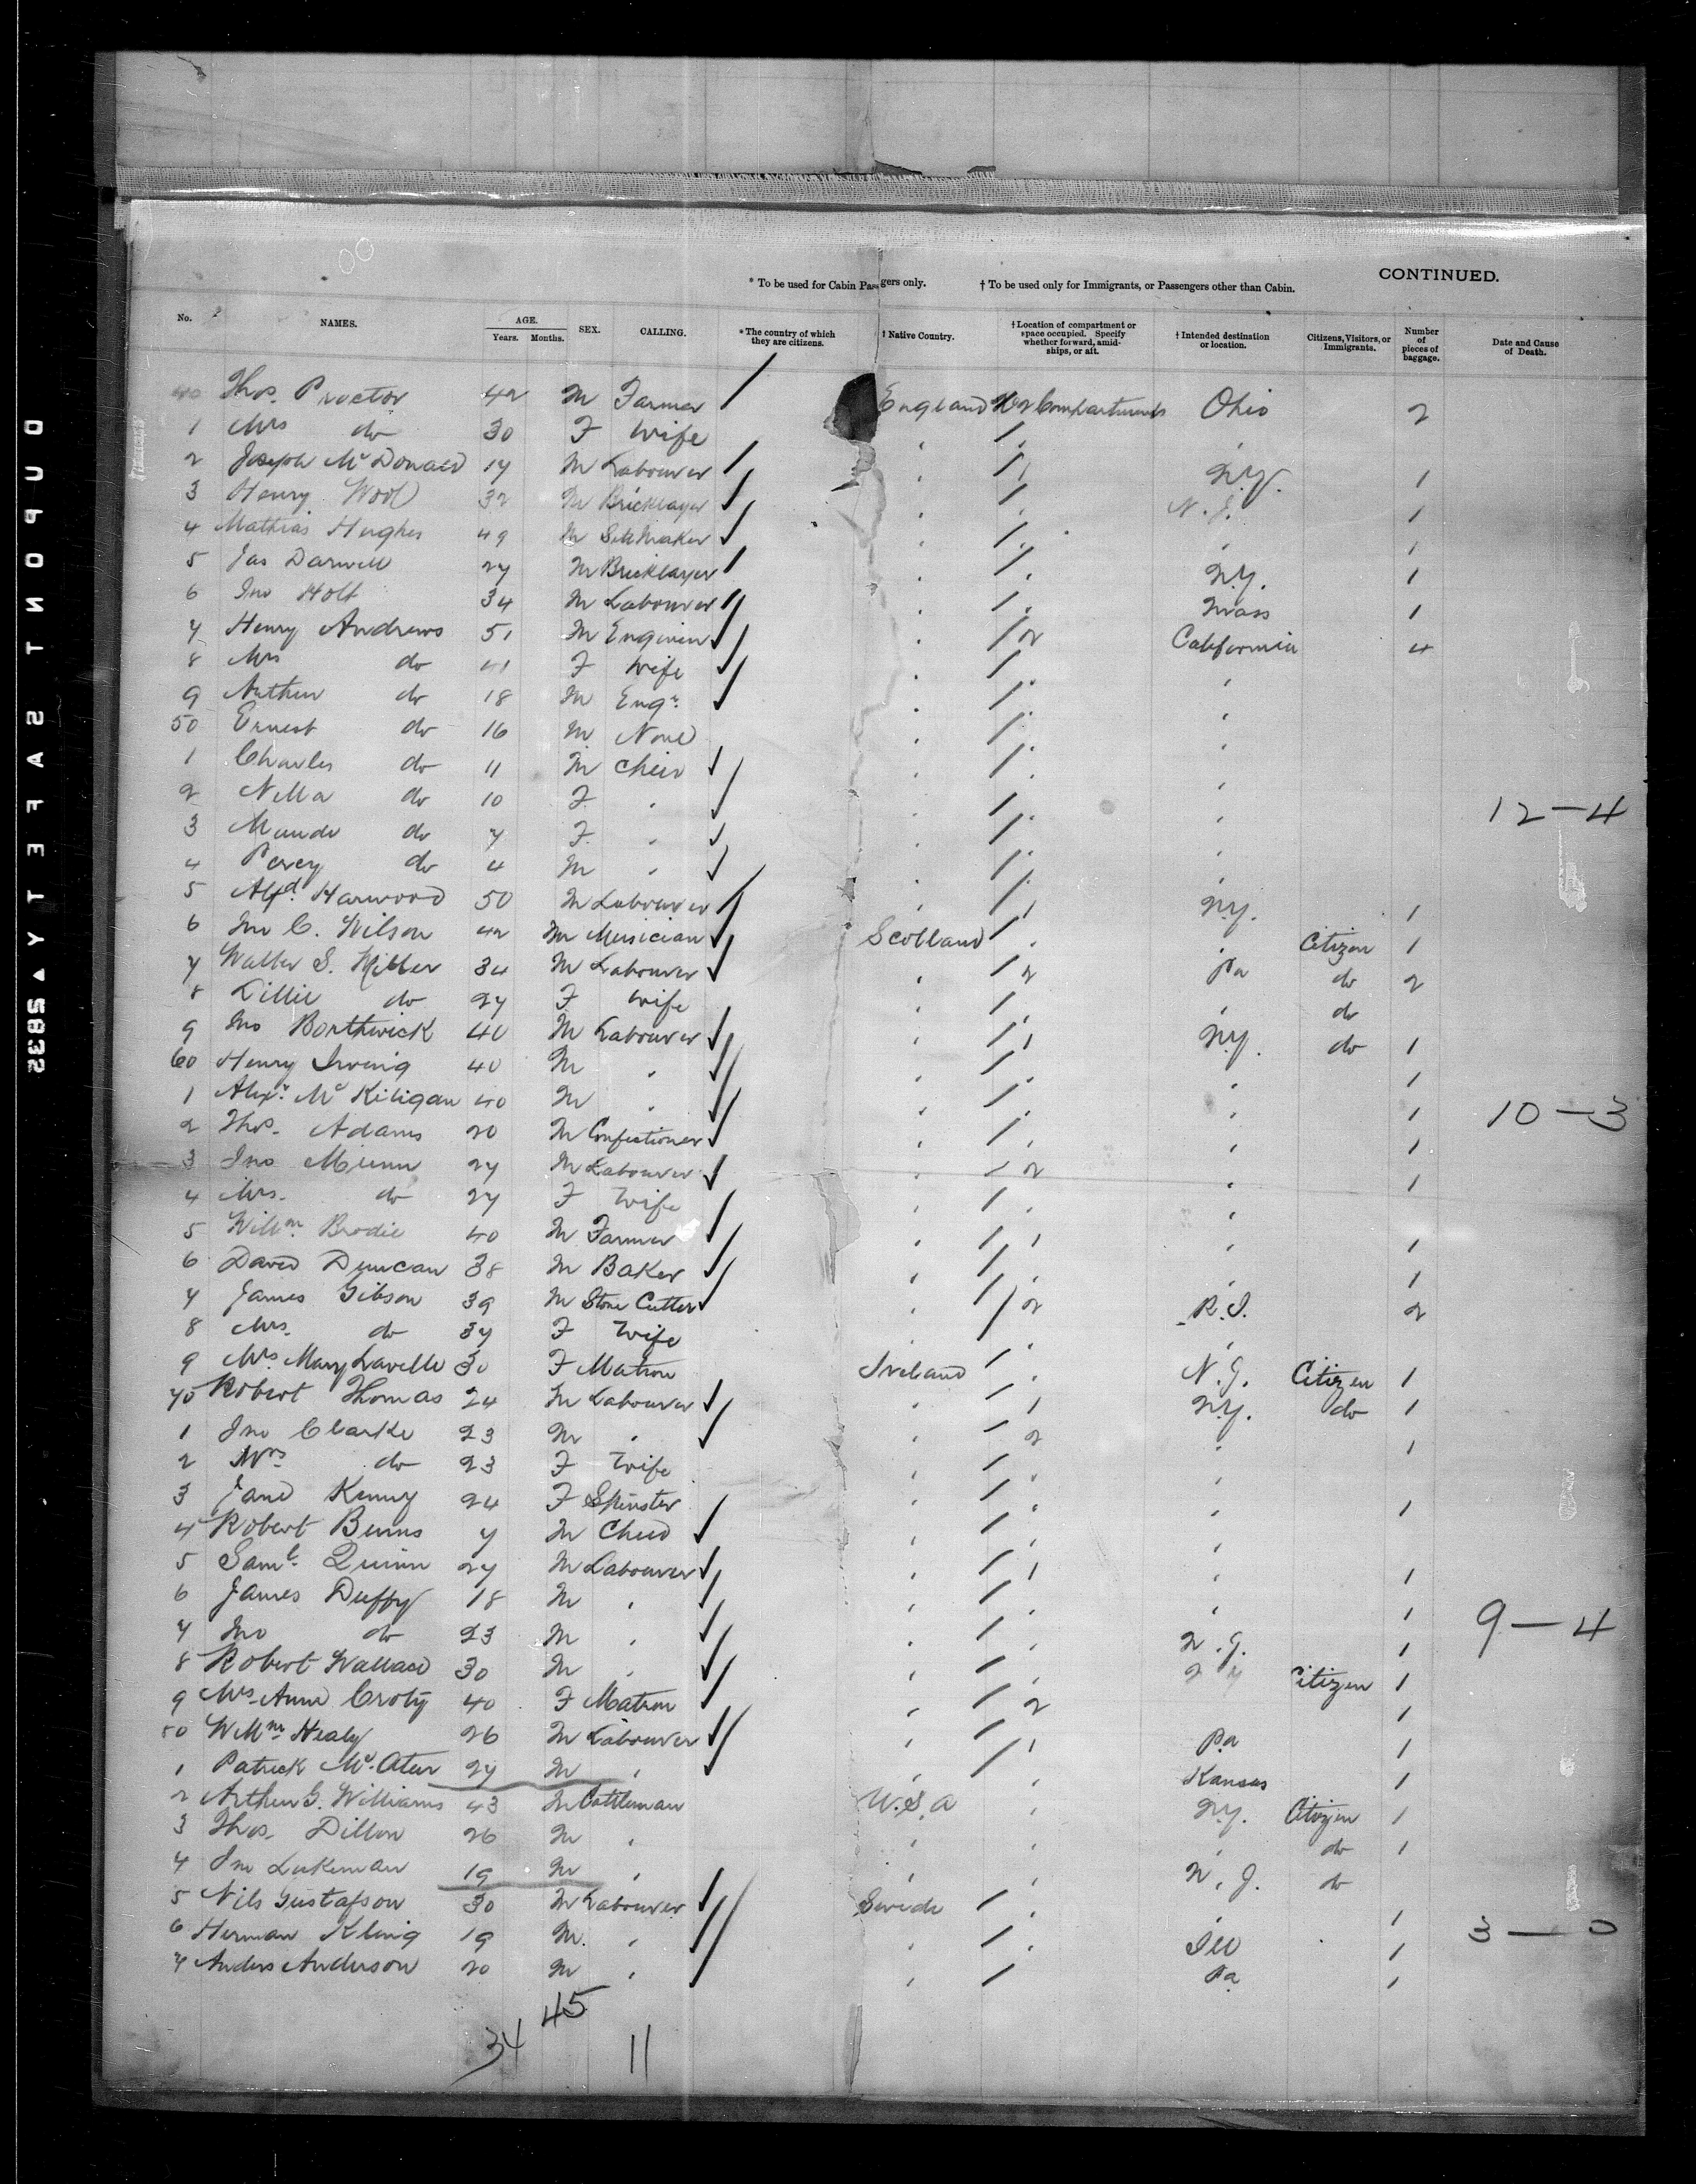 * To be used for Cabin Passengers only. † To be used only for Immigrants, or Passengers other than Cabin. CONTINUED.
No. NAMES. AGE. Years. Months. SEX. CALLING. * The country of which they are citizens. † Native Country. † Location of compartment or space occupied. Specify whether forward, amidships, or aft. † Intended destination or location. Citizens, Visitors, or Immigrants. Number of pieces of baggage. Date and Cause of Death.
40 Thos. Proctor 42 M Farmer England Compartments Ohio 2
1 Mrs do 30 F Wife
2 Joseph McDonald 17 M Labourer 1 N.Y. 1
3 Henry Wool 32 M Bricklayer N.J. 1
4 Mathias Hughes 49 M 1
5 Jas Darwell 27 M Bricklayer N.Y. 1
6 Jno Holt 34 M Labourer Mass 1
7 Henry Andrews 51 M 2 California 4
8 Mrs do 41 F Wife
9 do 18 M Engr.
50 Ernest do 16 M None
1 Charles do 11 M
2 Nella do 10 F 12-4
3 Maude do 7 F
4 Percy do 4 M
5 Alfd. Harwood 50 M Labourer 1 N.Y. 1
6 Jno C. Wilson 42 M Musician Scotland Citizen 1
7 Walter S. Miller 34 M Labourer 2 Pa do 2
8 Lillie do 27 F Wife do
9 Jno Borthwick 40 M Labourer 1 N.Y. do 1
60 Henry Irving 40 M 1
1 Alexr. McKiligan 40 M 1 10-3
2 Thos. Adams 20 M Confectioner 1
3 Jno Munn 27 M Labourer 2 1
4 Mrs. do 27 F Wife
5 Willm. Brodie 40 M Farmer 1 1
6 David Duncan 38 M Baker 1
7 James Gibson 39 M Stone Cutter 2 R.I. 2
8 Mrs. do 37 F Wife
9 Mrs. Mary Lavelle 30 F Matron Ireland N.J. Citizen 1
70 Robert Thomas 24 M Labourer 1 N.Y. do 1
1 Jno Clarke 23 M 2 1
2 Mrs do 23 F Wife
3 Jane Kenny 24 F Spinster 1
4 Robert Burns 7 M
5 Saml. Quinn 27 M Labourer 1 1
6 James Duffy 18 M 1
7 Jno do 23 M N.J. 1 9-4
8 Robert Wallace 30 M N Y Citizen 1
9 Mrs. Anne Croty 40 F Matron 2 1
80 Willm Healy 26 M Labourer 1 Pa 1
1 Patrick McAteer 27 M Kansas 1
2 Arthur G. Williams 43 M Cattleman U.S.A N.Y. Citizen 1
3 Thos. Dillon 26 M do 1
4 Jno Lukeman 19 M N.J. do
5 Nils Gustafson 30 M Labourer Swede 1
6 Herman Kling 19 M Ill 1 3-0
7 Anders Anderson 20 M Pa 1
45
34 11
DUPONT SAFETY 5832